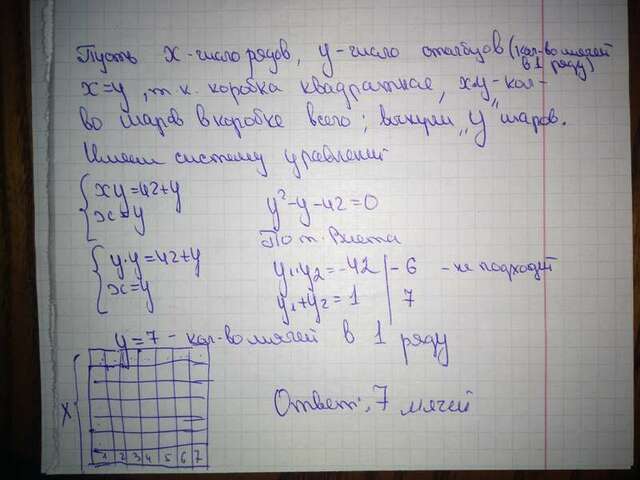 Пусть х-число рядов, у-число столбцов (кол-во мячей в 1 ряду)
х=у, т.к. коробка квадратная, х·у-кол-
во шаров в коробке всего; вынули "у" шаров.
Имеем систему уравнений
{ху=42+у
х=у
{у·у=42+у
х=у
у²-у-42=0
По т. Виета
у₁·у₂=-42 | -6 -не подходит
у₁+у₂=1 | 7
у=7-кол-во мячей в 1 ряду
Х
1 2 3 4 5 6 7
Ответ: 7 мячей